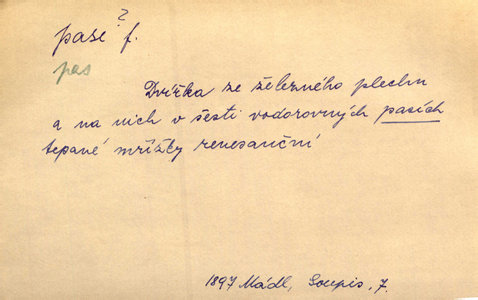 pase ? f.
pas
Dvířka ze železného plechu
a na nich v šesti vodorovných pasích
tepané mřížky renesanční
1897 Mádl, Soupis, 7.